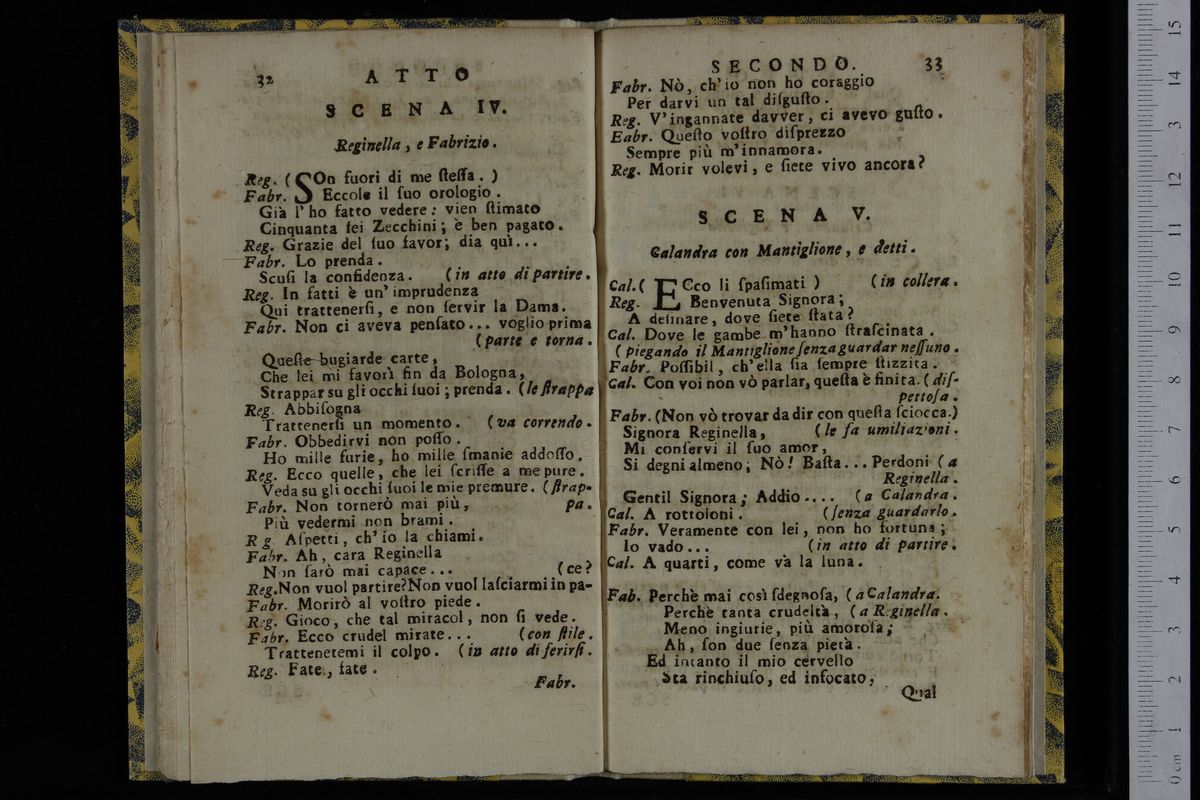 32
ATTO
SCENA IV.
Reginella, e Fabrizio.
Reg. (SOn fuori di me ſteſſa. )
Fabr. Eccole il ſuo orologio.
Già l'ho fatto vedere: vien ſtimato
Cinquanta ſei Zecchini; è ben pagato.
Reg. Grazie del ſuo favor; dia quì...
Fabr. Lo prenda.
Scuſi la confidenza. (in atto di partire.
Reg. In fatti è un' imprudenza
Qui trattenerſi, e non ſervir la Dama.
Fabr. Non ci aveva penſato... voglio prima
(parte e torna.
Queſte bugiarde carte,
Che lei mi favorì fin da Bologna,
Strappar su gli occhi ſuoi; prenda. (le ſtrappa
Reg. Abbiſogna
Trattenerſi un momento. (va correndo.
Fabr. Obbedirvi non poſſo.
Ho mille furie, ho mille ſmanie addoſſo.
Reg. Ecco quelle, che lei ſcriſſe a me pure.
Veda su gli occhi ſuoi le mie premure. (ſtrap-
Fabr. Non tornerò mai più, pa.
Più vedermi non brami.
Reg. Aſpetti, ch'io la chiami.
Fabr. Ah, cara Reginella
Non ſarò mai capace... (ce?
Reg. Non vuol partire? Non vuol laſciarmi in pa-
Fabr. Morirò al voſtro piede.
Reg. Gioco, che tal miracol, non ſi vede.
Fabr. Ecco crudel mirate... (con ſtile.
Trattenetemi il colpo. (in atto di ferirſi.
Reg. Fate, fate.
Fabr.
SECONDO. 33
Fabr. Nò, ch'io non ho coraggio
Per darvi un tal diſguſto.
Reg. V'ingannate davver, ci avevo guſto.
Eabr. Queſto voſtro diſprezzo
Sempre più m'innamora.
Reg. Morir volevi, e ſiete vivo ancora?
SCENA V.
Calandra con Mantiglione, e detti.
Cal. ( ECco li ſpaſimati ) (in collera.
Reg. Benvenuta Signora;
A deſinare, dove ſiete ſtata?
Cal. Dove le gambe m'hanno ſtraſcinata.
( piegando il Mantiglione ſenza guardar neſſuno.
Fabr. Poſſibil, ch'ella ſia ſempre ſtizzita.
Cal. Con voi non vò parlar, queſta è finita. ( diſ-
pettoſa.
Fabr. (Non vò trovar da dir con queſta ſciocca.)
Signora Reginella, (le fa umiliazioni.
Mi conſervi il ſuo amor,
Si degni almeno; Nò! Baſta... Perdoni (a
Reginella.
Gentil Signora; Addio.... (a Calandra.
Cal. A rottoloni. (ſenza guardarlo.
Fabr. Veramente con lei, non ho fortuna;
Io vado... (in atto di partire.
Cal. A quarti, come và la luna.
Fab. Perchè mai così ſdegnoſa, (a Calandra.
Perchè tanta crudeltà, (a Reginella.
Meno ingiurie, più amoroſa;
Ah, ſon due ſenza pietà.
Ed intanto il mio cervello
Sta rinchiuſo, ed infocato,
Qual